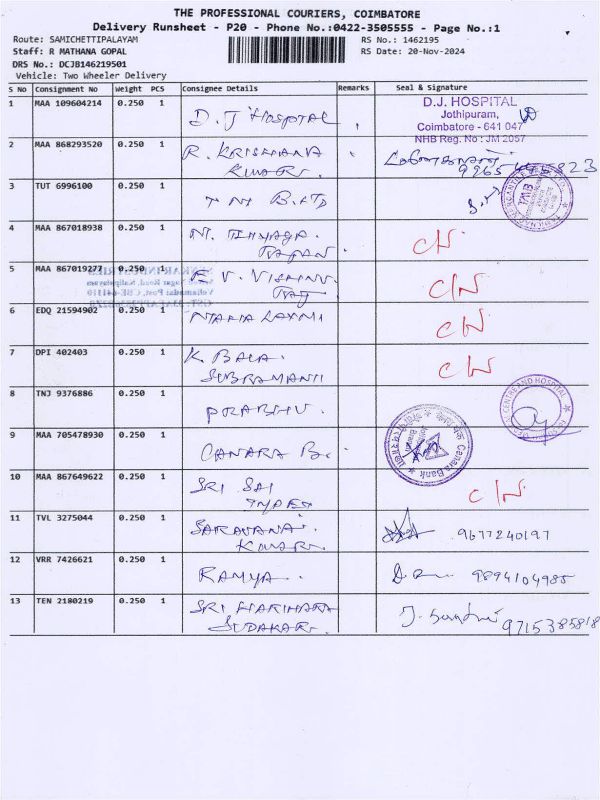 THE PROFESSIONAL COURIERS, COIMBATORE
Delivery Runsheet - P20 - Phone No.:0422-3505555 - Page No.:1
Route: SAMICHETTIPALAYAM RS No.: 1462195
Staff: R MATHANA GOPAL RS Date: 20-Nov-2024
DRS No.: DCJB146219501
Vehicle: Two Wheeler Delivery
S No Consignment No Weight PCS Consignee Details Remarks Seal & Signature
1 MAA 109604214 0.250 1 D. J Hospital D.J. HOSPITAL
Jothipuram,
Coimbatore - 641 047
NHB Reg No : JM 2057
2 MAA 868293520 0.250 1 R. KRISHANA
KUMAR.
3 TUT 6996100 0.250 1
4 MAA 867018938 0.250 1 C/N
5 MAA 867019277 0.250 1 E V. VISHNU C/N
6 EDQ 21594902 0.250 1 C/N
7 DPI 402403 0.250 1 K. BALA. C/N
SUBRAMANI
8 TNJ 9376886 0.250 1 PRABHU.
9 MAA 705478930 0.250 1 CANARA B. Canara Bank
10 MAA 867649622 0.250 1 SRI SAI C/N
TYPES
11 TVL 3275044 0.250 1 SARAVANA. 9677240197
KUMAR.
12 VRR 7426621 0.250 1 RAMYA. 9894104985
13 TEN 2180219 0.250 1 SRI HARIHARA
SUDAKAR. 9715385818